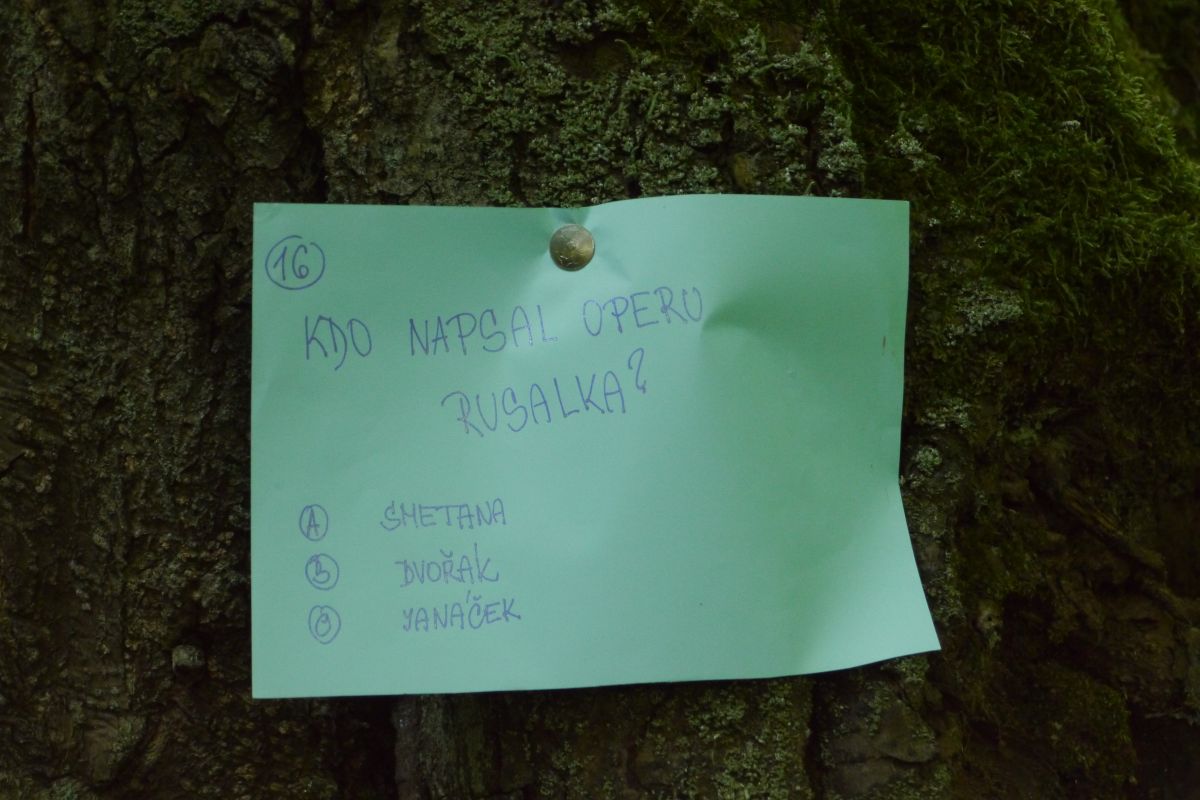 16
KDO NAPSAL OPERU
RUSALKA?
A SMETANA
B DVOŘÁK
C JANÁČEK